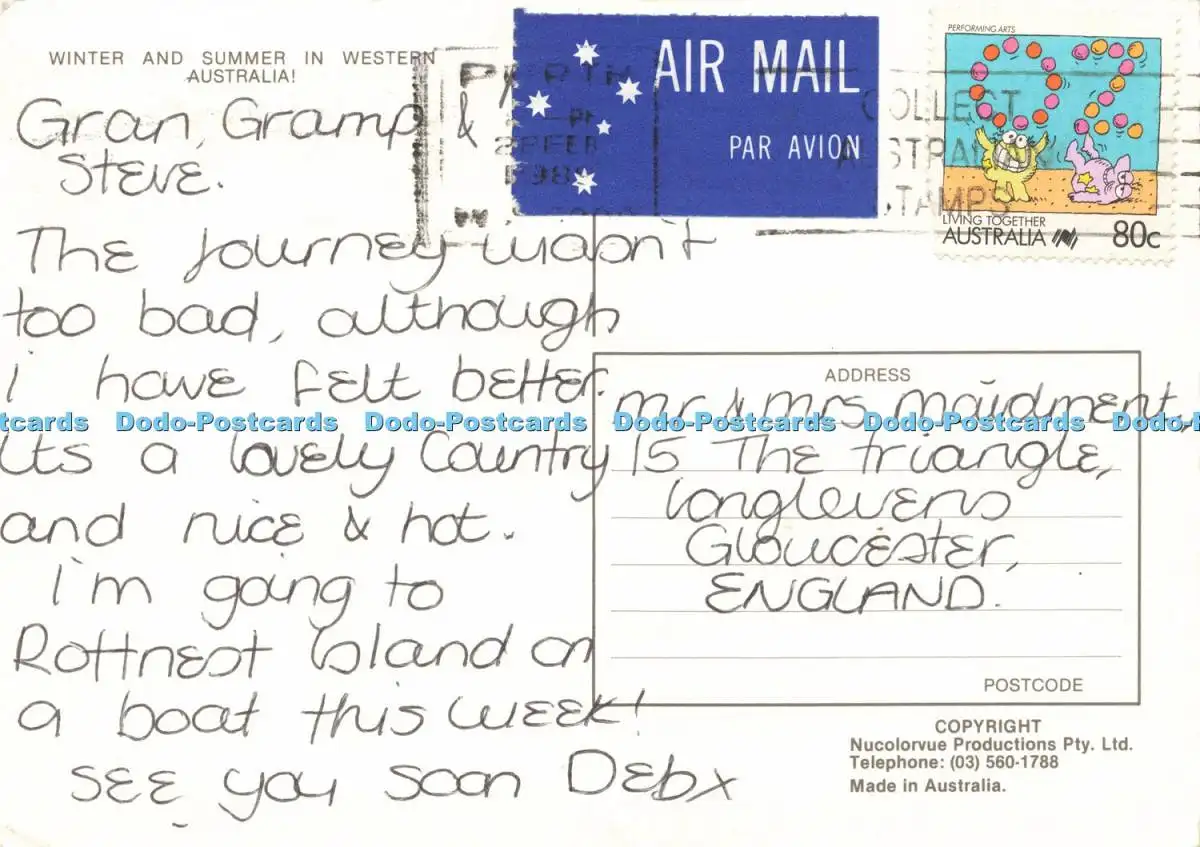 WINTER AND SUMMER IN WESTERN
AUSTRALIA!
Gran, Gramp &
Steve.
The journey wasn't
too bad, although
i have felt better.
Its a lovely Country
and nice & hot.
I'm going to
Rottnest Island on
a boat this week!
see you soon Debx
AIR MAIL
PAR AVION
PERTH
COLLECT
AUSTRALIAN
STAMPS
PERFORMING ARTS
LIVING TOGETHER
AUSTRALIA 80c
ADDRESS
mr & mrs maidment,
15 The triangle,
longlevens
Gloucester,
ENGLAND.
POSTCODE
COPYRIGHT
Nucolorvue Productions Pty. Ltd.
Telephone: (03) 560-1788
Made in Australia.
tcards Dodo-Postcards Dodo-Postcards Dodo-Postcards Dodo-Postcards Dodo-